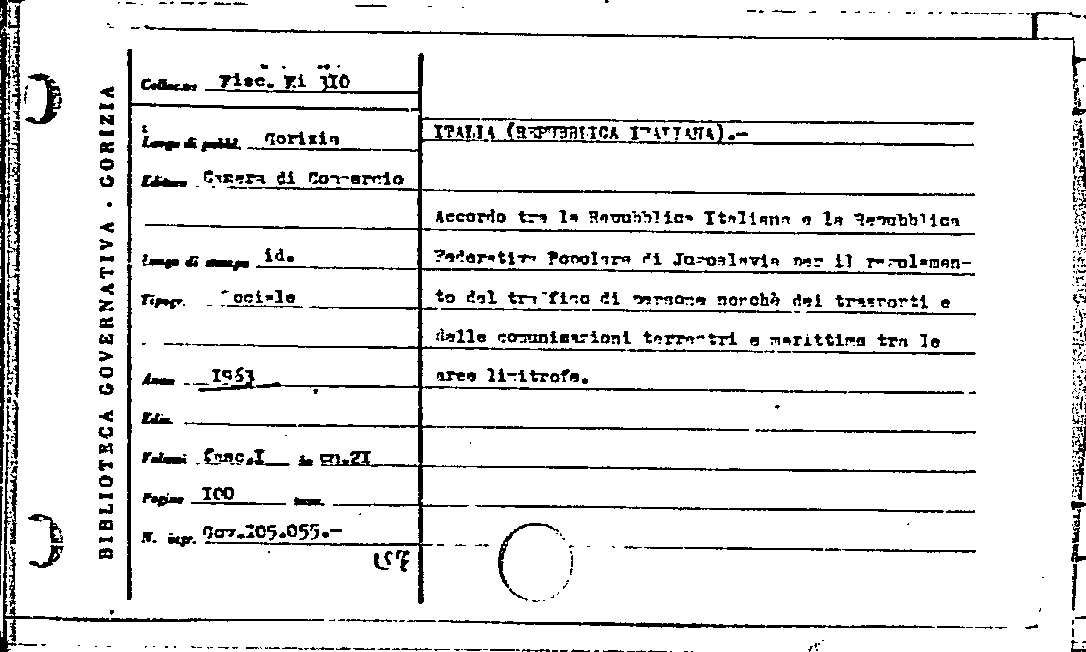 BIBLIOTECA GOVERNATIVA - GORIZIA
Collocaz. Misc. Mi 310
Luogo di pubbl. Gorizia
Editore Camera di Commercio
Luogo di stampa id.
Tipogr. Sociale
Anno 1963
Ediz.
Volumi fasc.I in cm.2I
Pagine I00 tavv.
N. ingr. Gov.I05.055.-
ITALIA (REPUBBLICA ITALIANA).-
Accordo tra la Repubblica Italiana e la Repubblica
Federativa Popolare di Jugoslavia per il regolamen-
to del traffico di persone nonchè dei trasporti e
delle comunicazioni terrestri e marittime tra le
aree limitrofe.